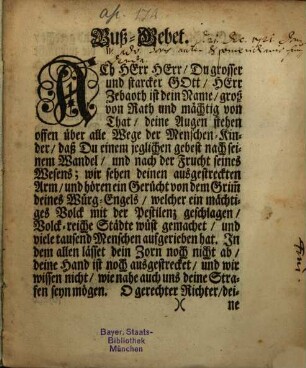 Buß-Gebet.
ACh HErr HErr / Du grosser
und starcker GOtt / HErr
Zebaoth ist dein Name / groß
von Rath und mächtig von
That / deine Augen stehen
offen über alle Wege der Menschen-Kin-
der / daß Du einem jeglichen gebest nach sei-
nem Wandel / und nach der Frucht seines
Wesens; wir sehen deinen ausgestreckten
Arm / und hören ein Gerücht von dem Grim̃
deines Würg-Engels / welcher ein mächti-
ges Volck mit der Pestilenz geschlagen /
Volck-reiche Städte wüst gemachet / und
viele tausend Menschen aufgerieben hat. In
dem allen lässet dein Zorn noch nicht ab /
deine Hand ist noch ausgestrecket / und wir
wissen nicht / wie nahe auch uns deine Stra-
fen seyn mögen. O gerechter Richter / dei-
)( ne
Bayer. Staats-
Bibliothek
München